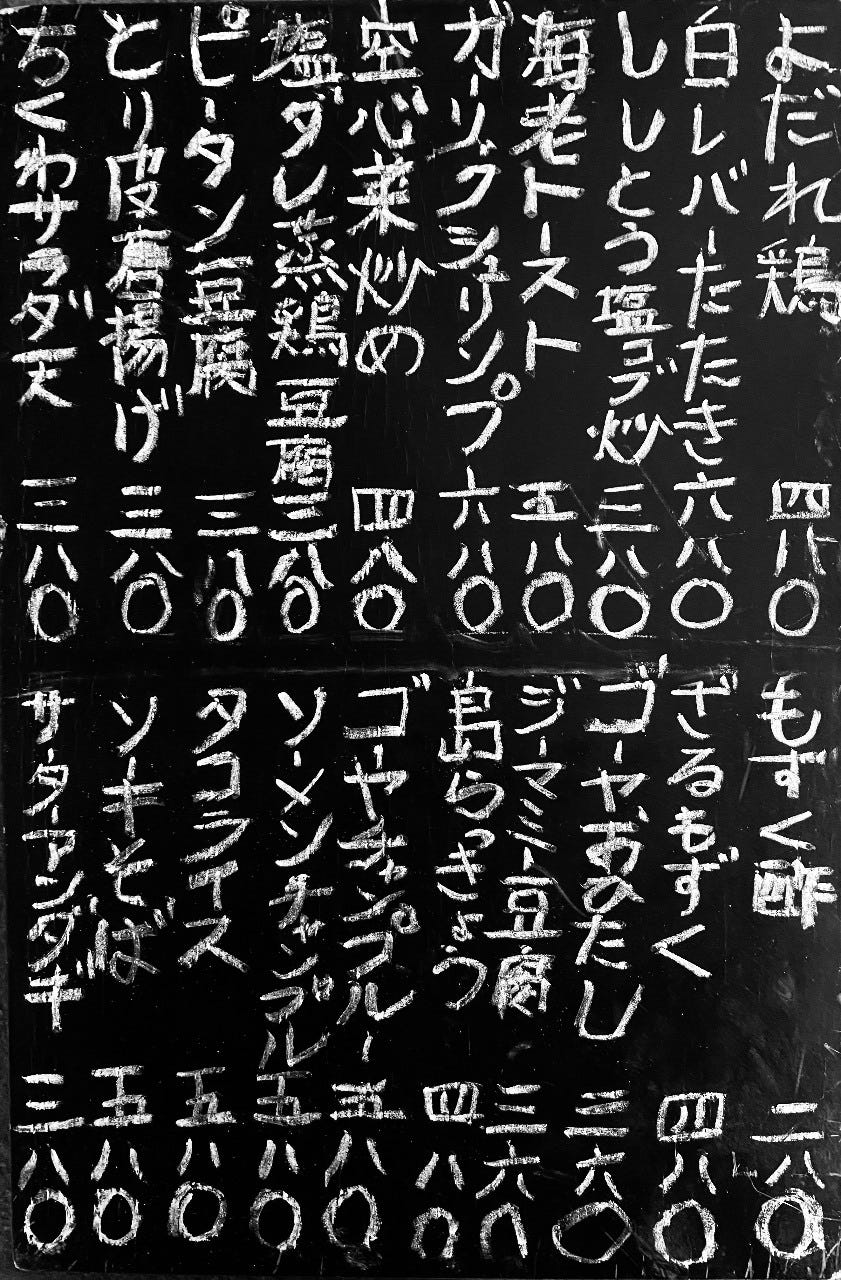 よだれ鶏 四八〇
白レバーたたき 六八〇
ししとう塩コブ炒 三八〇
海老トースト 五八〇
ガーリックシュリンプ 六八〇
空心菜炒め 四八〇
塩ダレ蒸鶏豆腐 三八〇
ピータン豆腐 三八〇
とり皮唐揚げ 三八〇
ちくわサラダ天 三八〇
もずく酢 二八〇
ざるもずく 四八〇
ゴーヤおひたし 三六〇
ジーマミー豆腐 三六〇
島らっきょう 四八〇
ゴーヤチャンプルー 五八〇
ソーメンチャンプル 五八〇
タコライス 五八〇
ソーキそば 五八〇
サーターアンダギ 三八〇